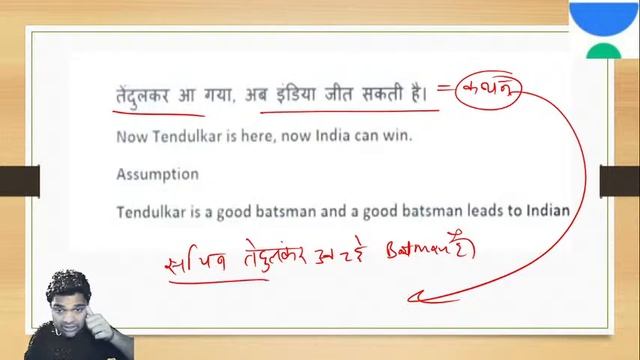 तेंदुलकर आ गया, अब इंडिया जीत सकती है। = कथन
Now Tendulkar is here, now India can win.
Assumption
Tendulkar is a good batsman and a good batsman leads to Indian
सचिन तेंदुलकर अच्छे Batman है)